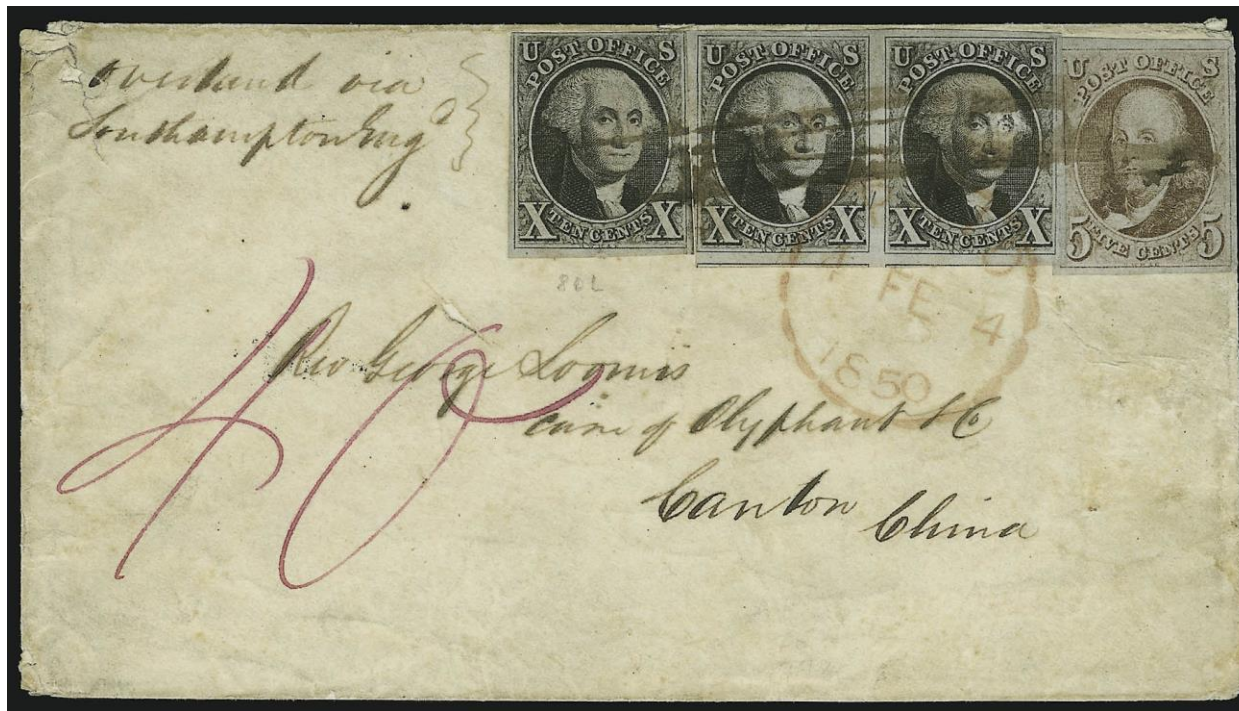 Overland via
Southampton Engd
U S
POST OFFICE
X TEN CENTS X
U S
POST OFFICE
X TEN CENTS X
U S
POST OFFICE
X TEN CENTS X
U S
POST OFFICE
5 FIVE CENTS 5
FE 4
1850
40
Rev George Loomis
care of Olyphant & Co
Canton China